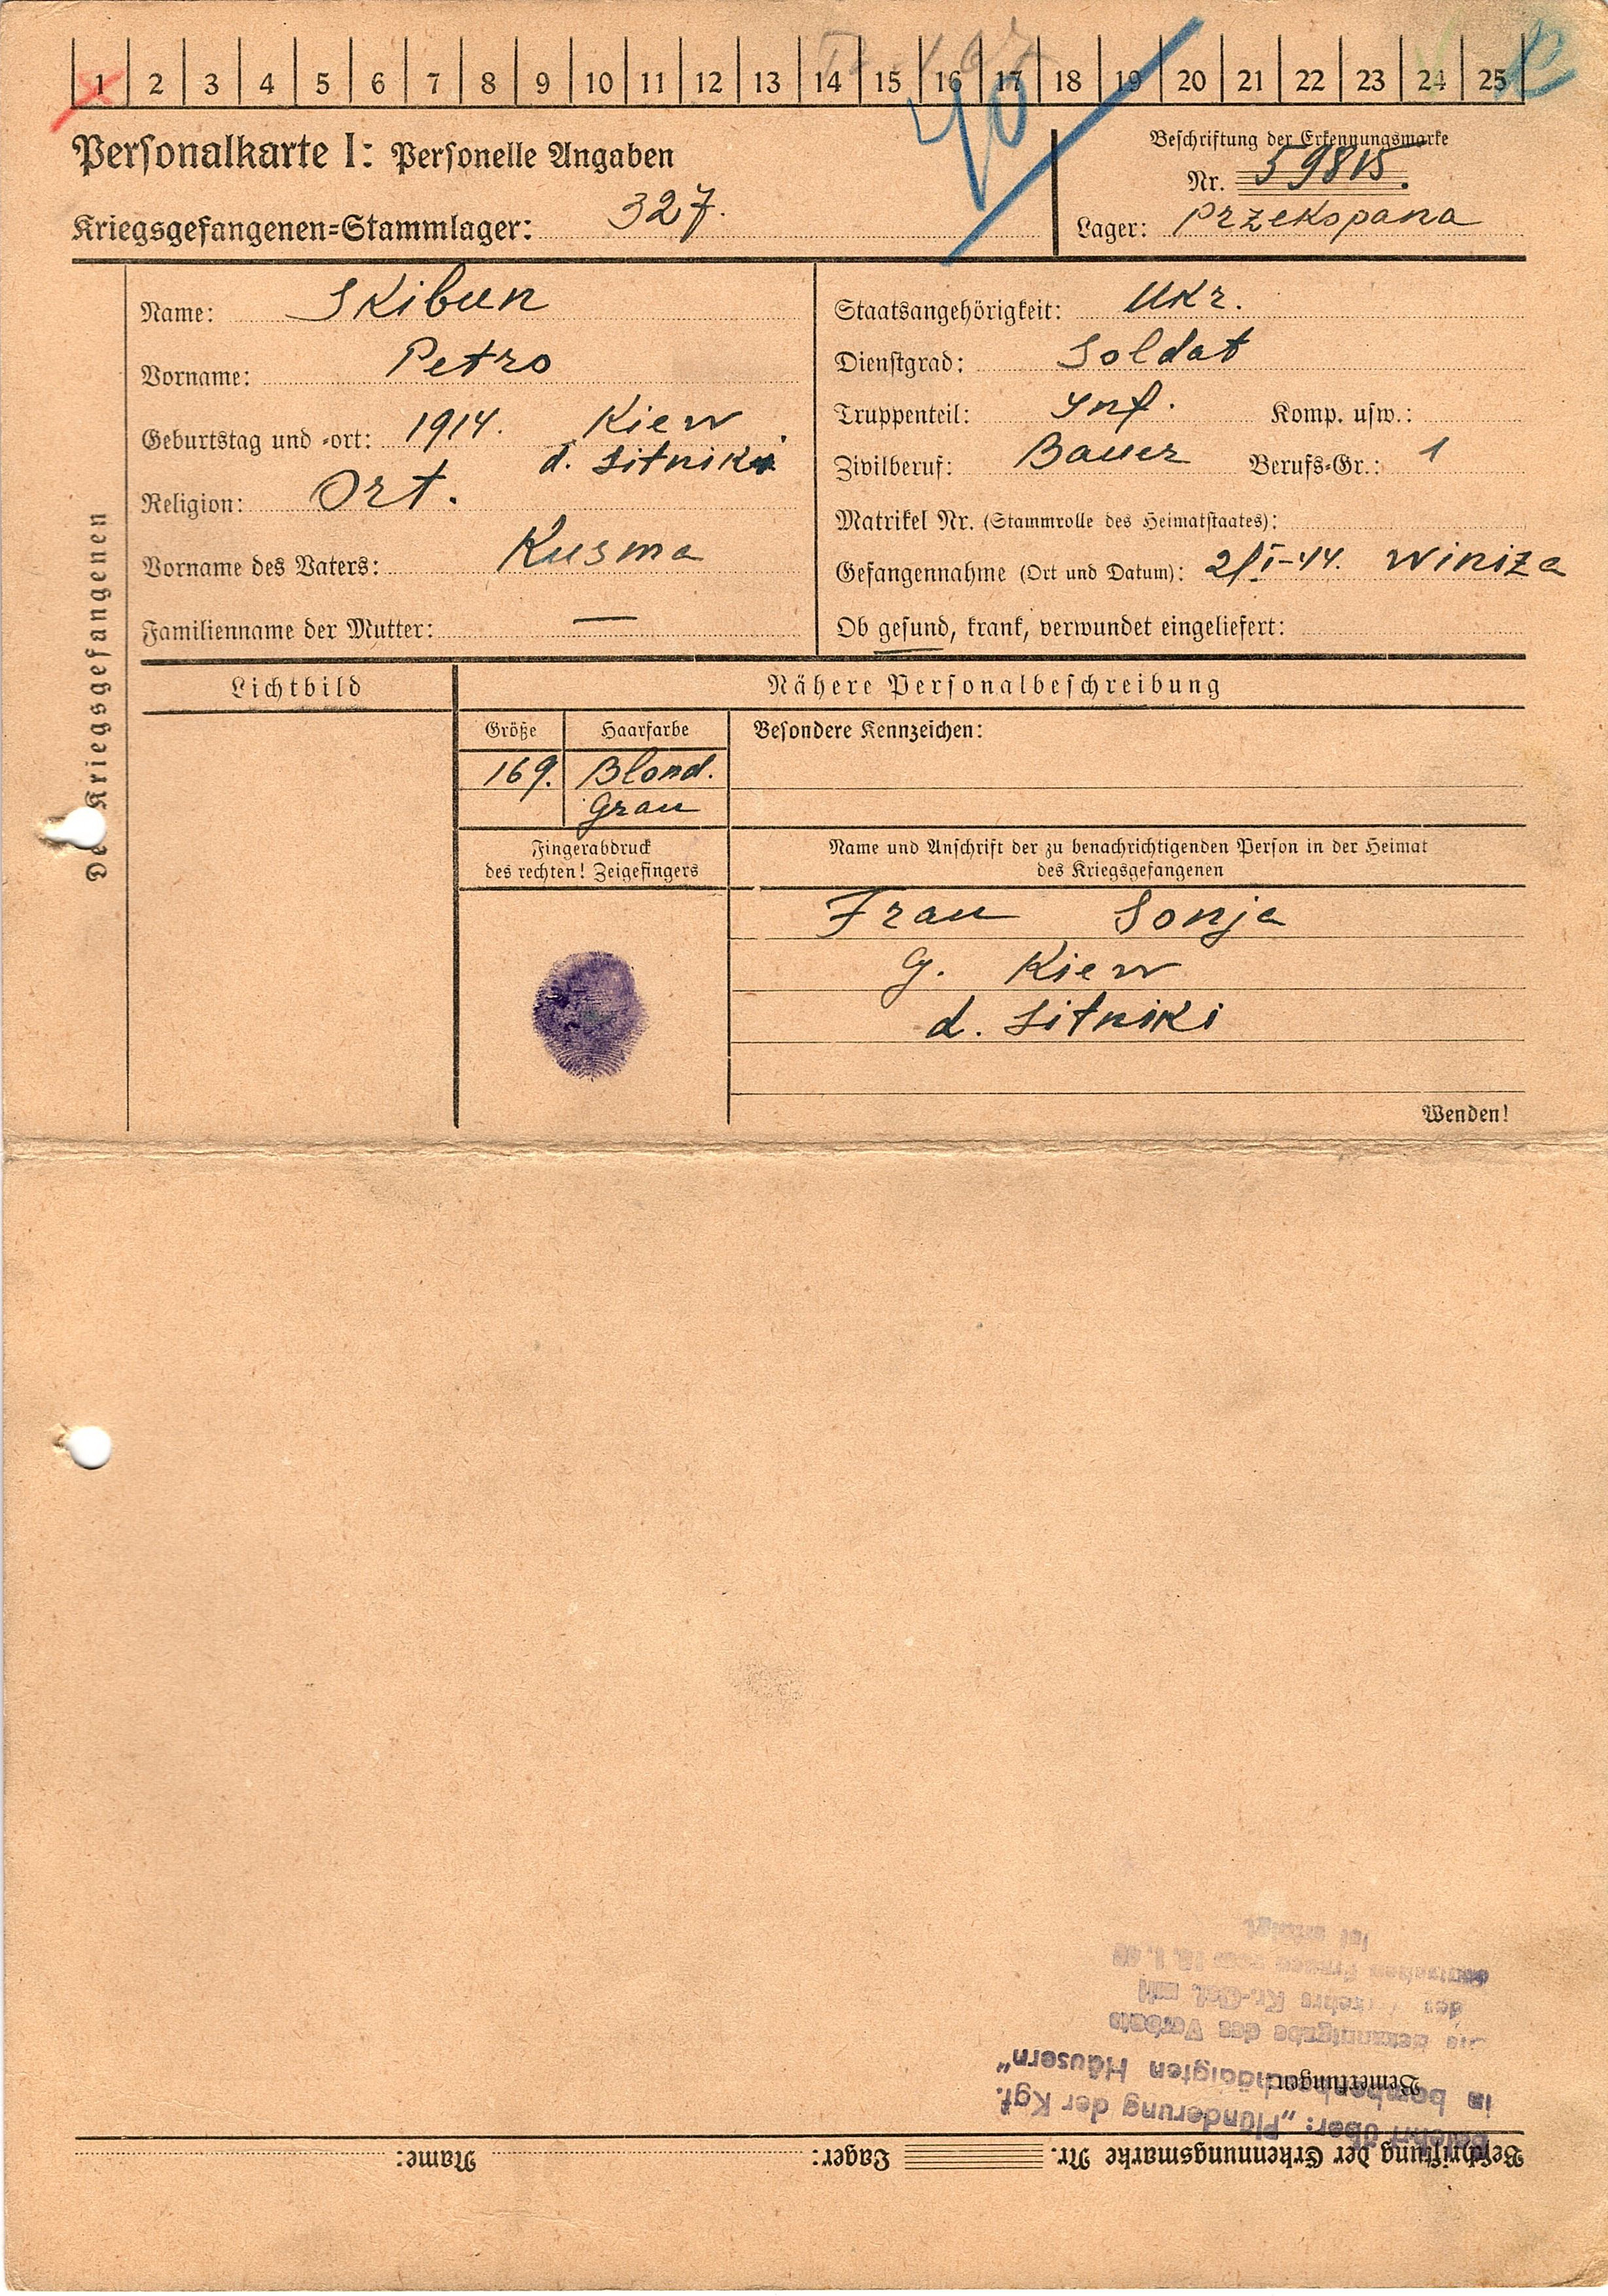 1 2 3 4 5 6 7 8 9 10 11 12 13 14 15 16 17 18 19 20 21 22 23 24 25
40
Personalkarte I: Personelle Angaben
Beschriftung der Erkennungsmarke
Nr. 59815.
Kriegsgefangenen=Stammlager: 327.
Lager: Przekopana
Des Kriegsgefangenen
Name: Skibun
Vorname: Petro
Geburtstag und =ort: 1914. Kiew
d. Sitniki
Religion: Ort.
Vorname des Vaters: Kusma
Familienname der Mutter: —
Staatsangehörigkeit: Ukr.
Dienstgrad: Soldat
Truppenteil: Inf. Komp. usw.:
Zivilberuf: Bauer Berufs=Gr.: 1
Matrikel Nr. (Stammrolle des Heimatstaates):
Gefangennahme (Ort und Datum): 2/I-44. Winiza
Ob gesund, krank, verwundet eingeliefert:
Lichtbild
Nähere Personalbeschreibung
Größe Haarfarbe Besondere Kennzeichen:
169. Blond.
Grau
Fingerabdruck
des rechten! Zeigefingers
Name und Anschrift der zu benachrichtigenden Person in der Heimat
des Kriegsgefangenen
Frau Sonja
G. Kiew
d. Sitniki
Wenden!
Beschriftung der Erkennungsmarke Nr. Lager: Name:
Bemerkungen:
belehrt über: „Plünderung der Kgf.
in bombenbeschädigten Häusern"
Die Bekanntgabe des Verbots
des Kr.-Gef. mit
deutschen Frauen vom
ist erfolgt